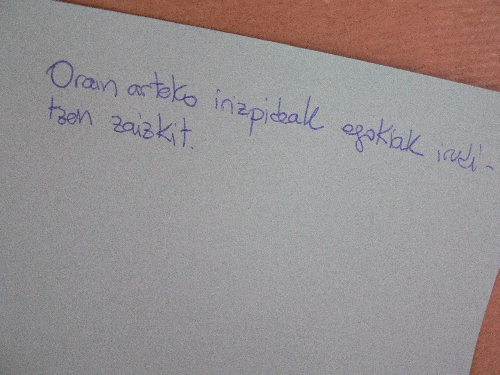 Orain arteko irizpideak egokiak irudi-
tzen zaizkit.